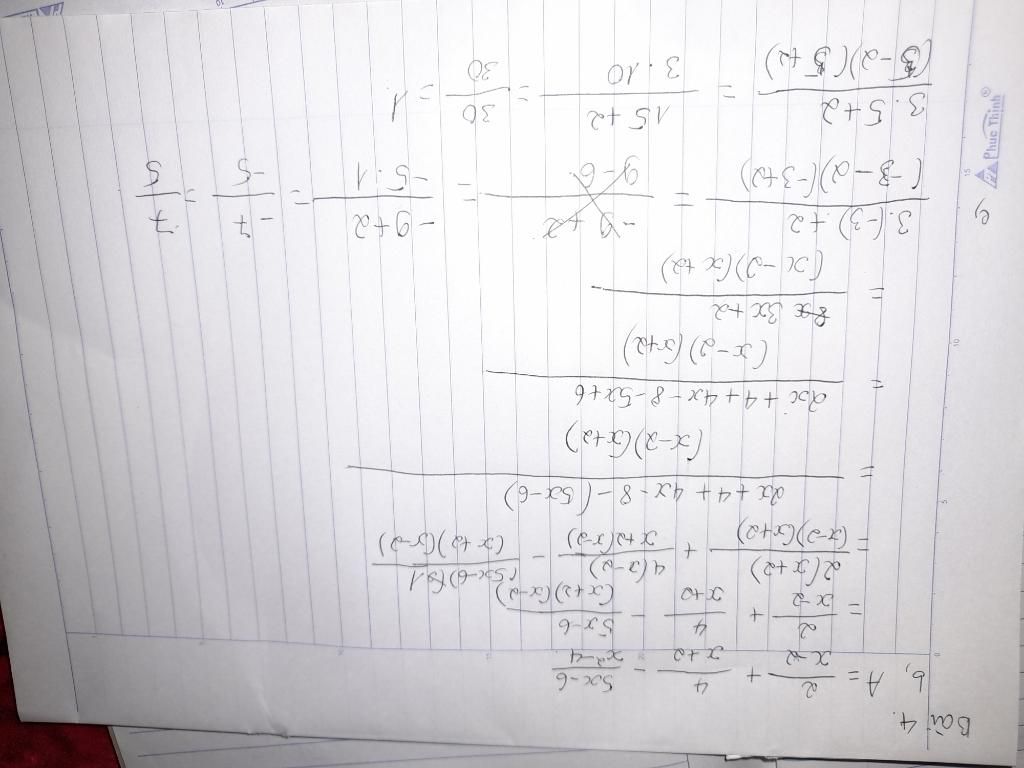 Bài 4.
b, A = 2/(x-2) + 4/(x+2) - (5x-6)/(x²-4)
= 2/(x-2) + 4/(x+2) - (5x-6)/((x+2)(x-2))
= 2(x+2)/((x-2)(x+2)) + 4(x-2)/(x+2(x-2)) -
= (2x+4+4x-8-(5x-6))/((x-2)(x+2))
= (2x+4+4x-8-5x+6)/((x-2)(x+2))
= 3x+2/((x-2)(x+2))
c, (3.(-3)+2)/((-3-2)(-3+2)) = (-9+2)/(9-6) = (-9+2)/(-5.1) = -7/-5 = 7/5
(3.5+2)/((5-2)(5+2)) = (15+2)/(3.10) = 30/30 = 1
Phuc Thinh®
5
10
15